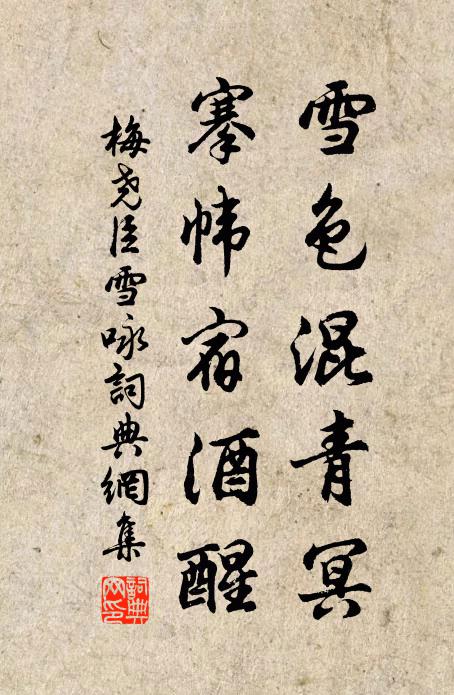 雪色混青冥
搴帏宿酒醒
梅尧臣雪咏詞典網集